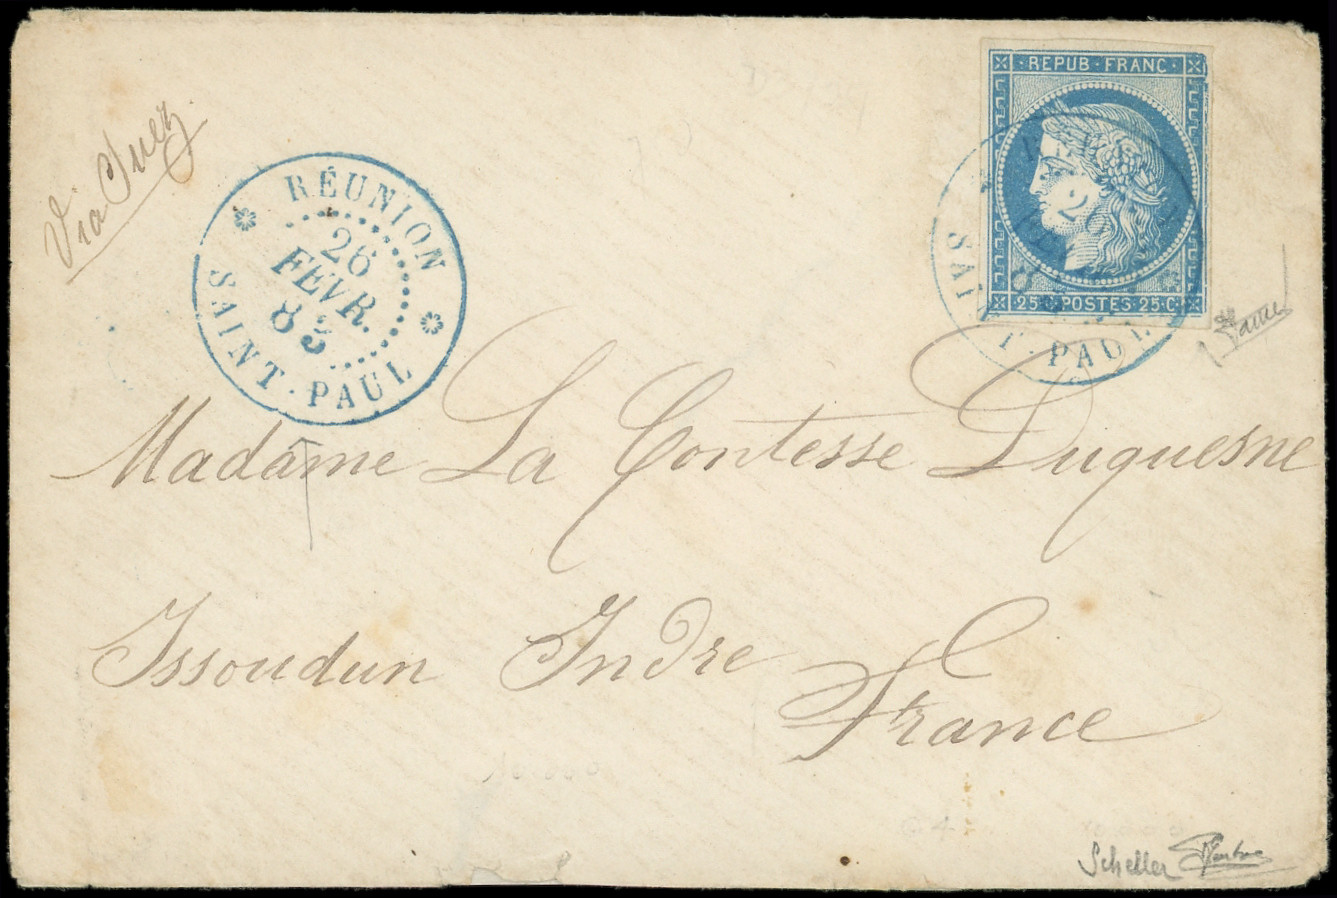 Via Suez
RÉUNION
26
FEVR.
83
SAINT-PAUL
REPUB·FRANC
25 C POSTES 25 C
2
SAINT-PAUL
Madame La Comtesse Duquesne
Issoudun Indre
France
Scheller